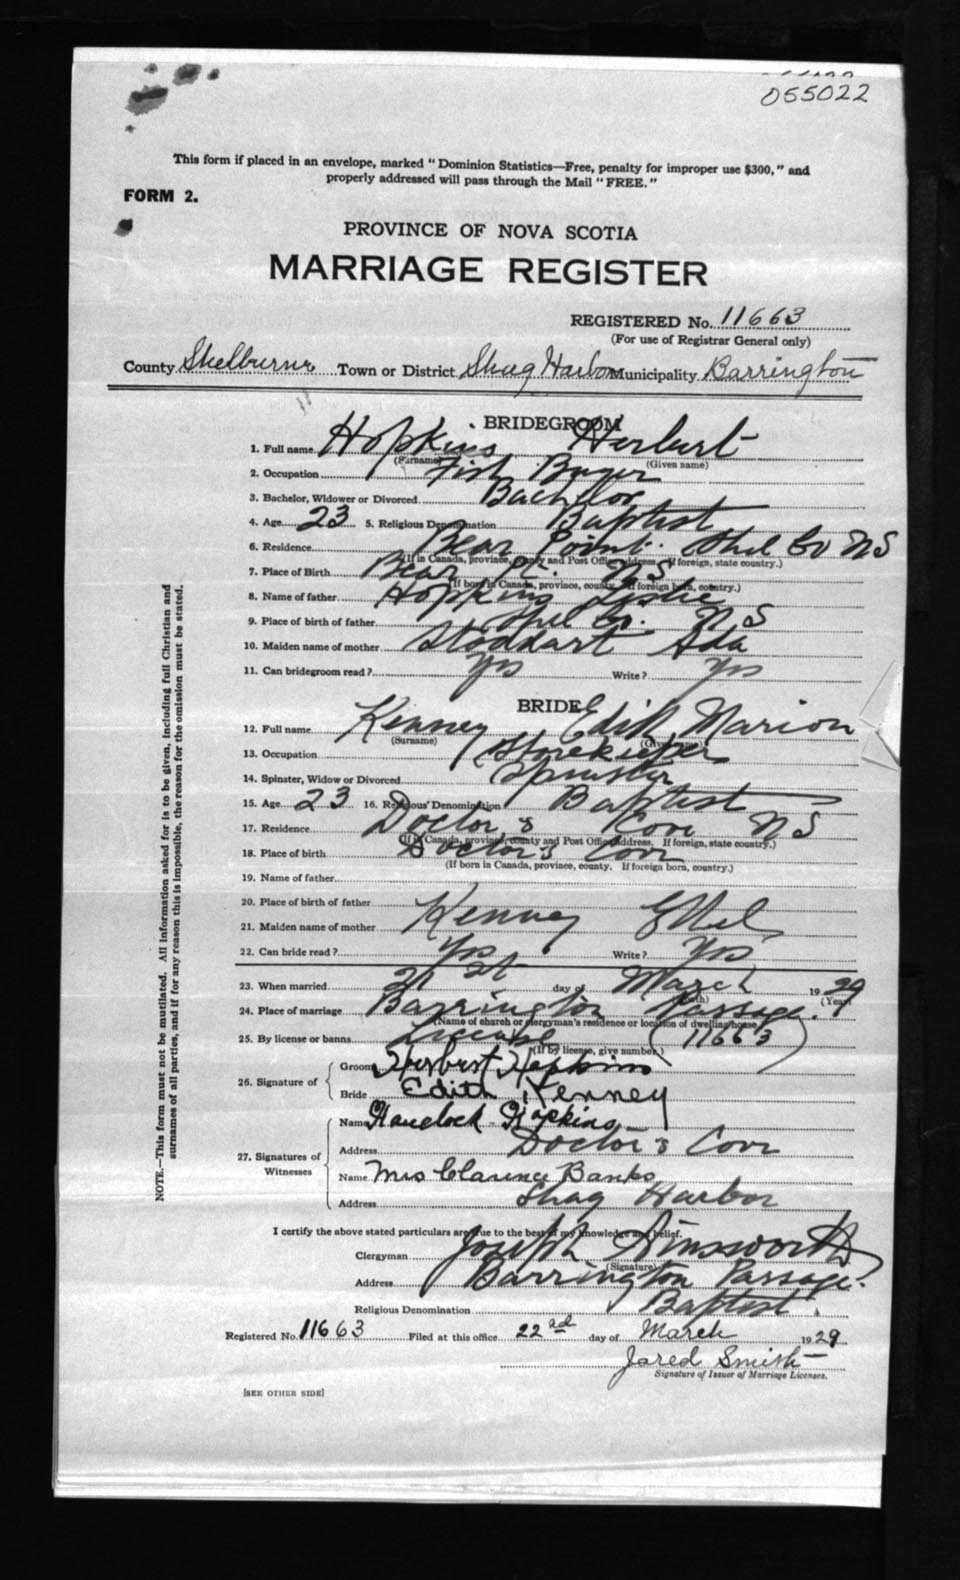 055022
This form if placed in an envelope, marked "Dominion Statistics—Free, penalty for improper use $300," and
properly addressed will pass through the Mail "FREE."
FORM 2.
PROVINCE OF NOVA SCOTIA
MARRIAGE REGISTER
REGISTERED No. 11663
(For use of Registrar General only)
County Shelburne Town or District Shag Harbor Municipality Barrington
BRIDEGROOM
1. Full name Hopkins Herbert
(Surname) (Given name)
2. Occupation Fish Buyer
3. Bachelor, Widower or Divorced Bachelor
4. Age 23 5. Religious Denomination Baptist
6. Residence Bear Point. Shel Co NS
(If in Canada, province, county and Post Office address. If foreign, state country.)
7. Place of Birth Bear Pt. NS
(If born in Canada, province, county. If foreign born, country.)
8. Name of father Hopkins Leslie
9. Place of birth of father Shel Co. NS
10. Maiden name of mother Stoddart Ada
11. Can bridegroom read? Yes Write? Yes
BRIDE
12. Full name Kenney Edith Marion
(Surname) (Given name)
13. Occupation Storekeeper
14. Spinster, Widow or Divorced Spinster
15. Age 23 16. Religious Denomination Baptist
17. Residence Doctor's Cove NS
(If in Canada, province, county and Post Office address. If foreign, state country.)
18. Place of birth Doctor's Cove
(If born in Canada, province, county. If foreign born, country.)
19. Name of father
20. Place of birth of father
21. Maiden name of mother Kenney Ethel
22. Can bride read? Yes Write? Yes
23. When married 21st day of March 1929
(Month) (Year)
24. Place of marriage Barrington Passage.
(Name of church or clergyman's residence or location of dwelling house)
25. By license or banns License (11663)
(If by license, give number.)
26. Signature of
Groom Herbert Hopkins
Bride Edith Kenney
27. Signatures of Witnesses
Name Havelock Hopkins
Address Doctor's Cove
Name Mrs Clarence Banks
Address Shag Harbor
I certify the above stated particulars are true to the best of my knowledge and belief.
Clergyman Joseph Ainsworth
(Signature)
Address Barrington Passage.
Religious Denomination Baptist.
Registered No. 11663 Filed at this office 22nd day of March 1929
Jared Smith
Signature of Issuer of Marriage Licenses.
[SEE OTHER SIDE]
NOTE.—This form must not be mutilated. All information asked for is to be given, including full Christian and
surnames of all parties, and if for any reason this is impossible, the reason for the omission must be stated.